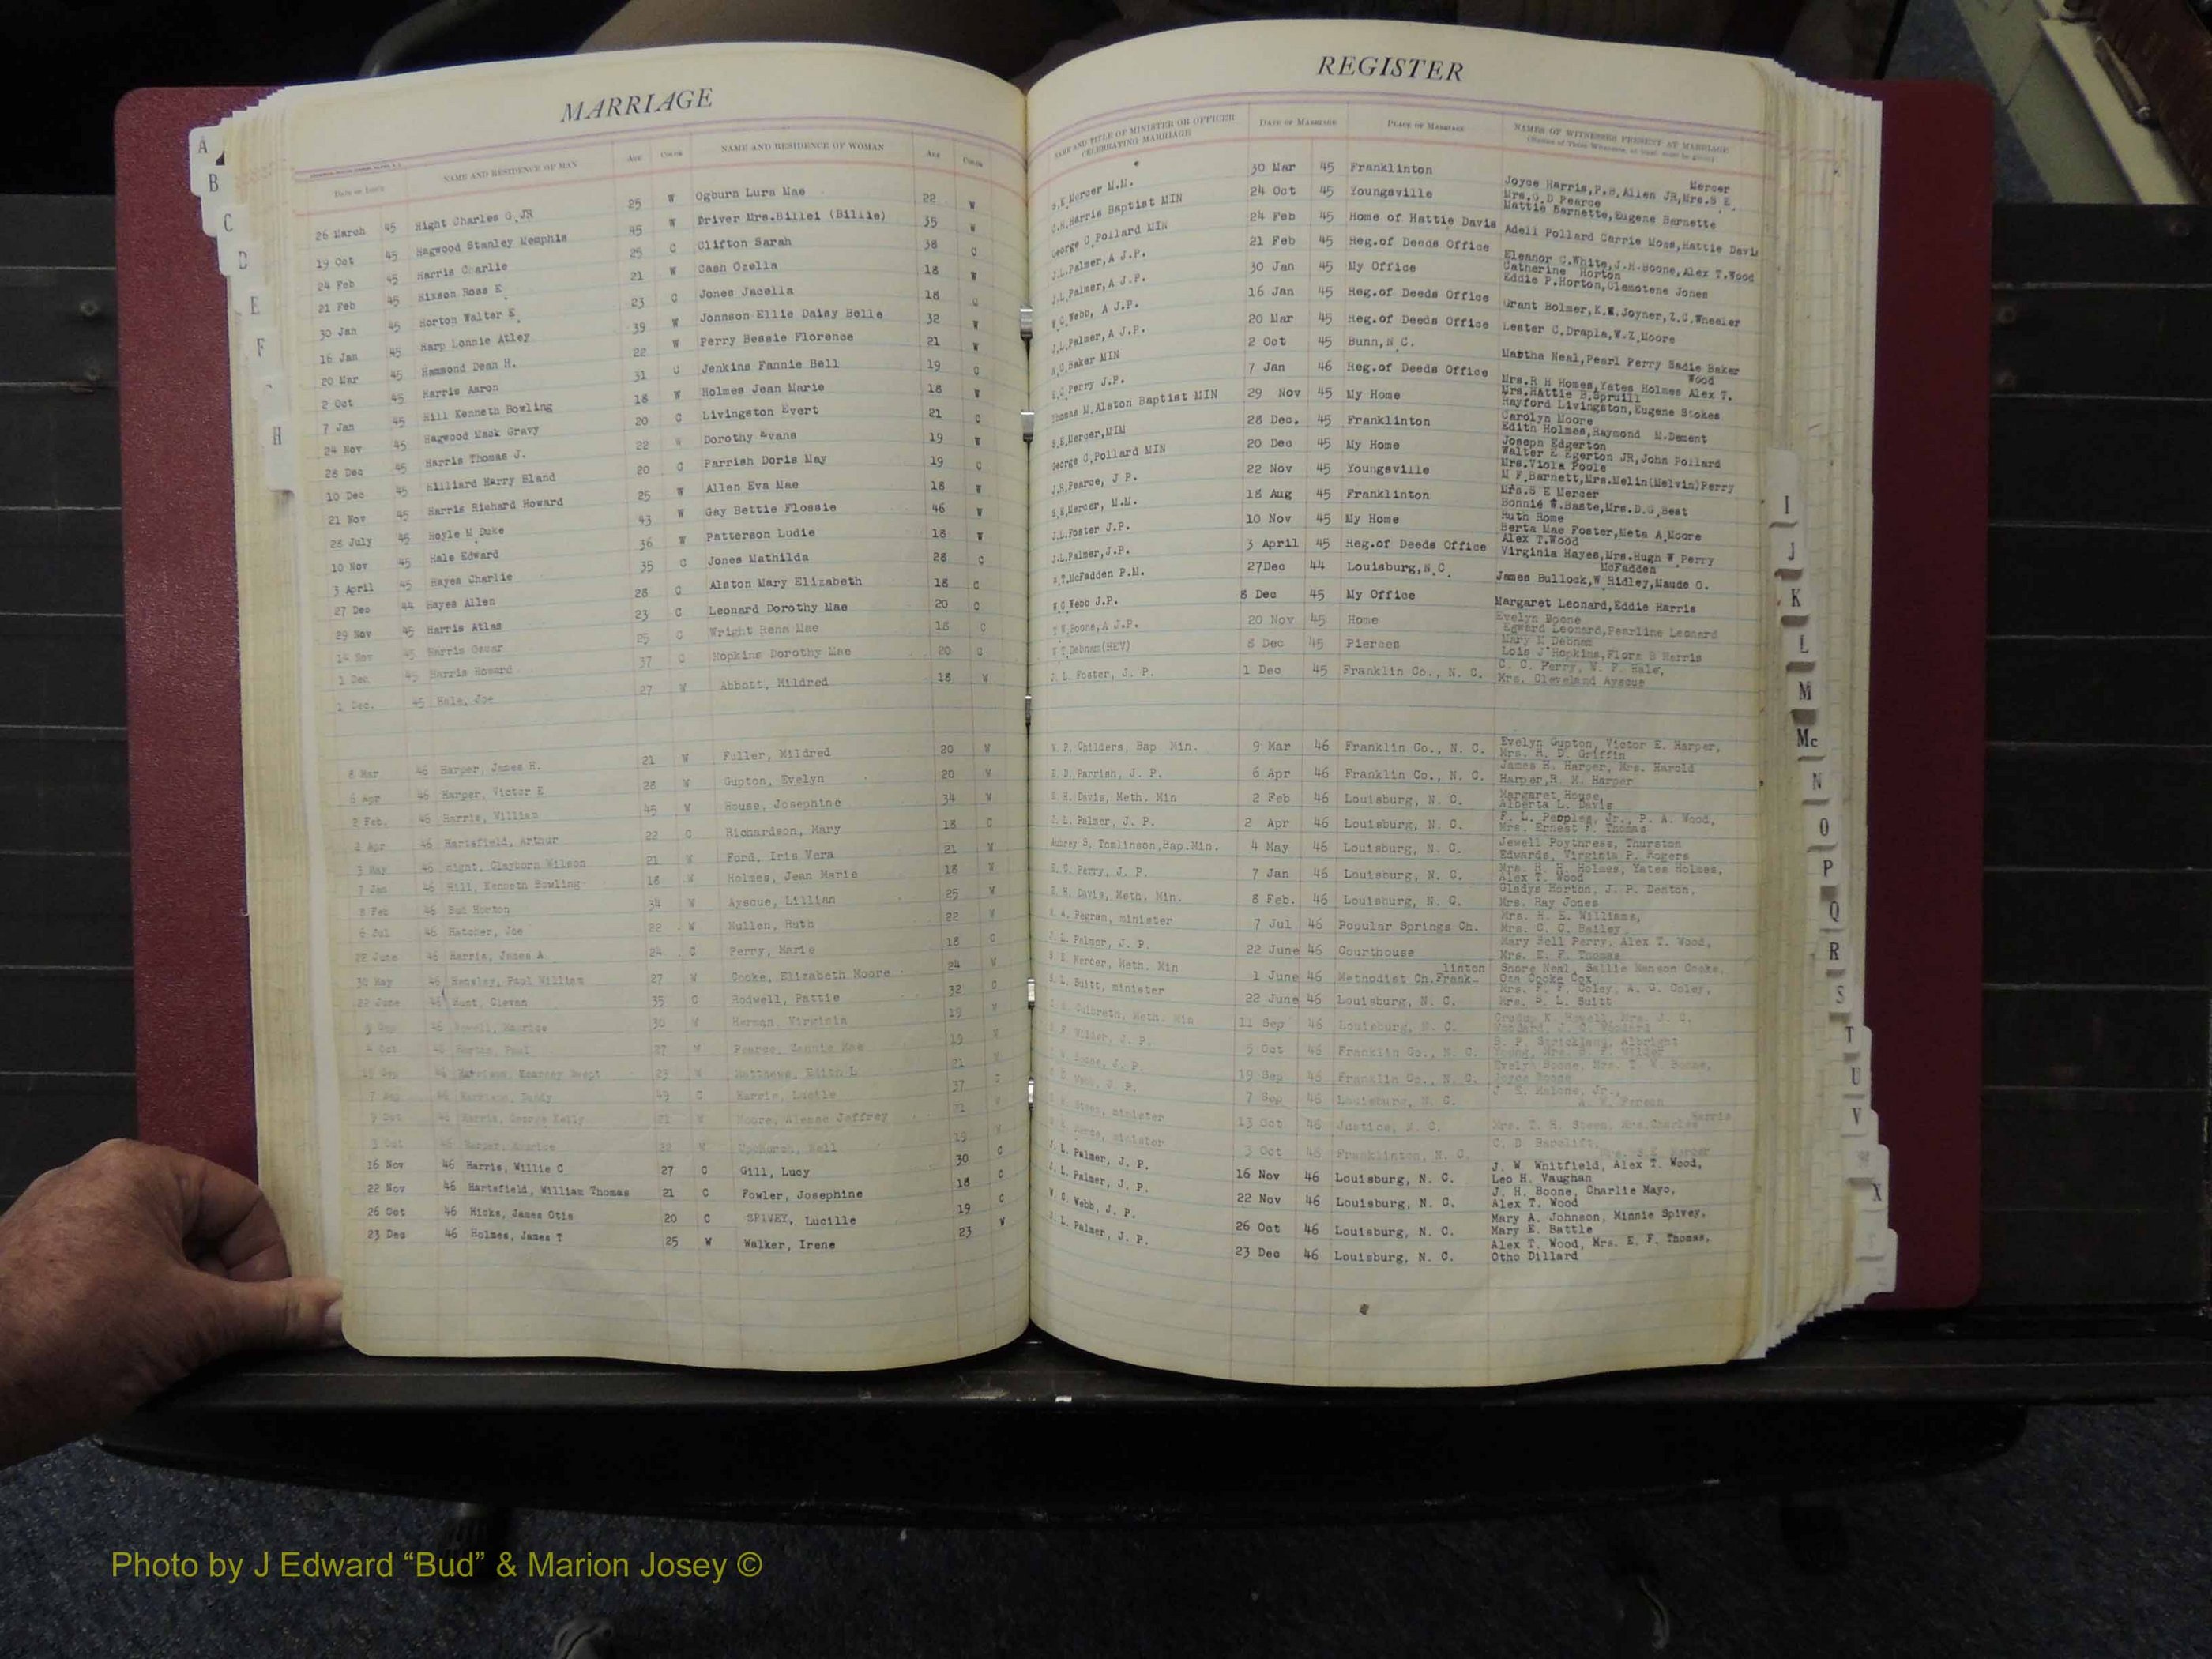 MARRIAGE
DATE OF ISSUE NAME AND RESIDENCE OF MAN AGE COLOR NAME AND RESIDENCE OF WOMAN AGE COLOR
26 March 45 Hight Charles G.JR 25 W Ogburn Lura Mae 22 W
19 Oct 45 Hagwood Stanley Memphis 45 W Driver Mrs.Billei (Billie) 35 W
24 Feb 45 Harris Charlie 25 C Clifton Sarah 38 C
21 Feb 45 Hixson Ross E. 21 W Cash Ozelia 18 W
30 Jan 45 Horton Walter E. 23 C Jones Jacelia 18 C
16 Jan 45 Harp Lonnie Atley 39 W Johnson Ellie Daisy Belle 32 W
20 Mar 45 Hammond Dean H. 22 W Perry Bessie Florence 21 W
2 Oct 45 Harris Aaron 31 C Jenkins Fannie Bell 19 C
7 Jan 45 Hill Kenneth Bowling 18 W Holmes Jean Marie 18 W
24 Nov 45 Hagwood Mack Gravy 20 C Livingston Evert 21 C
28 Dec 45 Harris Thomas J. 22 W Dorothy Evans 19 W
10 Dec 45 Hilliard Harry Bland 20 C Parrish Doris May 19 C
21 Nov 45 Harris Richard Howard 25 W Allen Eva Mae 18 W
28 July 45 Hoyle M Duke 43 W Gay Bettie Flossie 46 W
10 Nov 45 Hale Edward 36 W Patterson Ludie 18 W
3 April 45 Hayes Charlie 35 C Jones Mathilda 28 C
27 Dec 44 Hayes Allen 28 C Alston Mary Elizabeth 18 C
29 Nov 45 Harris Atlas 23 C Leonard Dorothy Mae 20 C
14 Nov 45 Harris Oscar 25 C Wright Rena Mae 18 C
1 Dec 45 Harris Howard 37 C Hopkins Dorothy Mae 20 C
1 Dec. 45 Hale, Joe 27 W Abbott, Mildred 18 W
8 Mar 46 Harper, James H. 21 W Fuller, Mildred 20 W
6 Apr 46 Harper, Victor E 28 W Gupton, Evelyn 20 W
2 Feb. 46 Harris, William 45 W House, Josephine 34 W
2 Apr 46 Hartsfield, Arthur 22 C Richardson, Mary 18 C
3 May 46 Hight, Clayborn Wilson 21 W Ford, Iris Vera 21 W
7 Jan 46 Hill, Kenneth Bowling 18 W Holmes, Jean Marie 18 W
8 Feb 46 Bud Horton 34 W Ayscue, Lillian 25 W
6 Jul 46 Hatcher, Joe 22 W Mullen, Ruth 22 W
22 June 46 Harris, James A 24 C Perry, Marie 18 C
30 May 46 Hensley, Paul William 27 W Cooke, Elizabeth Moore 24 W
22 June 46 Hunt, Clevan 35 C Rodwell, Pattie 32 C
46 Howell, Maurice 30 W Herman, Virginia 19 W
4 Oct 46 Paul 27 W Pearce, Mae 19 W
46 Harrison, 23 W Matthews, Edith L 21 W
46 Harrison, Daddy 49 C Harris, Lucile 37 C
9 Oct 46 Harris, George Kelly 21 W Moore, Jeffrey
3 Oct 46 Harper, Maurice 22 W Nell 19 W
16 Nov 46 Harris, Willie C 27 C Gill, Lucy 30 C
22 Nov 46 Hartsfield, William Thomas 21 C Fowler, Josephine 18 C
26 Oct 46 Hicks, James Otis 20 C SPIVEY, Lucille 19 C
23 Dec 46 Holmes, James T 25 W Walker, Irene 23 W
REGISTER
NAME AND TITLE OF MINISTER OR OFFICER CELEBRATING MARRIAGE DATE OF MARRIAGE PLACE OF MARRIAGE NAMES OF WITNESSES PRESENT AT MARRIAGE
S.E.Mercer M.M. 30 Mar 45 Franklinton Joyce Harris,P.B.Allen JR,Mrs.S E. Mercer
C.H.Harris Baptist MIN 24 Oct 45 Youngsville Mrs.G.D Pearce
Mattie Barnette,Eugene Barnette
George C.Pollard MIN 24 Feb 45 Home of Hattie Davis Adell Pollard Carrie Moss,Hattie Davis
J.L.Palmer,A J.P. 21 Feb 45 Reg.of Deeds Office Eleanor C.White,J.H.Boone,Alex T.Wood
J.L.Palmer,A J.P. 30 Jan 45 My Office Catherine Horton
Eddie P.Horton,Clemotene Jones
W.C.Webb, A J.P. 16 Jan 45 Reg.of Deeds Office Grant Bolmer,K.W.Joyner,Z.C.Wheeler
J.L.Palmer,A J.P. 20 Mar 45 Reg.of Deeds Office Lester C.Drapla,W.Z.Moore
Baker MIN 2 Oct 45 Bunn,N C. Martha Neal,Pearl Perry Sadie Baker
Perry J.P. 7 Jan 46 Reg.of Deeds Office Mrs.R H Homes,Yates Holmes Alex T. Wood
Thomas M.Alston Baptist MIN 29 Nov 45 My Home Mrs.Hattie B.Spruill
Rayford Livingston,Eugene Stokes
S.E.Mercer,MIM 28 Dec. 45 Franklinton Carolyn Moore
Edith Holmes,Raymond M.Dement
George C.Pollard MIN 20 Dec 45 My Home Joseph Edgerton
Walter E Egerton JR,John Pollard
J.R.Pearce, J P. 22 Nov 45 Youngsville Mrs.Viola Poole
M F.Barnett,Mrs.Melin(Melvin)Perry
S.E.Mercer, M.M. 18 Aug 45 Franklinton Mrs.S E Mercer
Bonnie W.Baste,Mrs.D.G.Best
J.L.Foster J.P. 10 Nov 45 My Home Ruth Home
Berta Mae Foster,Meta A.Moore
J.L.Palmer,J.P. 3 April 45 Reg.of Deeds Office Alex T.Wood
Virginia Hayes,Mrs.Hugh W Perry
McFadden P.M. 27Dec 44 Louisburg,N.C. McFadden
James Bullock,W Ridley,Maude O.
W.C Webb J.P. 8 Dec 45 My Office Margaret Leonard,Eddie Harris
T W.Boone,A J.P. 20 Nov 45 Home Evelyn Boone
Edward Leonard,Pearline Leonard
Debnam(REV) 8 Dec 45 Pierces Mary M Debnam
Lois J Hopkins,Flora B Harris
J. L. Foster, J. P. 1 Dec 45 Franklin Co., N. C. C. C. Perry, W. F. Hale,
Mrs. Cleveland Ayscue
W. P. Childers, Bap Min. 9 Mar 46 Franklin Co., N. C. Evelyn Gupton, Victor E. Harper,
Mrs. H. D. Griffin
Parrish, J. P. 6 Apr 46 Franklin Co., N. C. James H. Harper, Mrs. Harold
Harper,R. M. Harper
E. H. Davis, Meth. Min 2 Feb 46 Louisburg, N. C. Margaret House,
Alberta L. Davis
J. L. Palmer, J. P. 2 Apr 46 Louisburg, N. C. F. L. Peoples, Jr., P. A. Wood,
Mrs. Ernest F. Thomas
Aubrey S. Tomlinson,Bap.Min. 4 May 46 Louisburg, N. C. Jewell Poythress, Thurston
Edwards, Virginia P. Rogers
Perry, J. P. 7 Jan 46 Louisburg, N. C. Mrs. R. H. Holmes, Yates Holmes,
Alex T. Wood
E. H. Davis, Meth. Min. 8 Feb. 46 Louisburg, N. C. Gladys Horton, J. P. Denton,
Mrs. Ray Jones
Pegram, minister 7 Jul 46 Popular Springs Ch. Mrs. H. E. Williams,
Mrs. C. C. Bailey
J. L. Palmer, J. P. 22 June 46 Courthouse Mary Bell Perry, Alex T. Wood,
Mrs. E. F. Thomas
S E. Mercer, Meth. Min 1 June 46 Methodist Ch.Frank- linton Snore Neal, Sallie Henson Cooke,
Osa Cooke Cox
S. L. Suitt, minister 22 June 46 Louisburg, N. C. Mrs. F. F. Coley, A. G. Coley,
Mrs. S. L. Suitt
Culbreth, Meth. Min 11 Sep 46 Louisburg, N. C. Howell, Mrs. J. C.
Woodard, J. C. Woodard
Wilder, J. P. 5 Oct 46 Franklin Co., N. C. B. P. Strickland, Albright
Young, Mrs. Wilder
Boone, J. P. 19 Sep 46 Franklin Co., N. C. Evelyn Boone, Mrs. T. W. Boone,
Joyce Boone
Webb, J. P. 7 Sep 46 Louisburg, N. C. J E. Malone, Jr.,
Person
Steen, minister 13 Oct 46 Justice, N. C. Mrs. T. H. Steen, Mrs.Charles Harris
minister 3 Oct 46 Franklinton, N. C. C. D Barclift,
Mrs. S.E Mercer
J. L. Palmer, J. P. 16 Nov 46 Louisburg, N. C. J. W. Whitfield, Alex T. Wood,
Leo H. Vaughan
J. L. Palmer, J. P. 22 Nov 46 Louisburg, N. C. J. H. Boone, Charlie Mayo,
Alex T. Wood
W. C. Webb, J. P. 26 Oct 46 Louisburg, N. C. Mary A. Johnson, Minnie Spivey,
Mary E. Battle
J. L. Palmer, J. P. 23 Dec 46 Louisburg, N. C. Alex T. Wood, Mrs. E. F. Thomas,
Otho Dillard
A
B
C
D
E
F
H
I
J
K
L
M
Mc
N
O
P
Q
R
S
T
U
V
X
Photo by J Edward “Bud” & Marion Josey ©